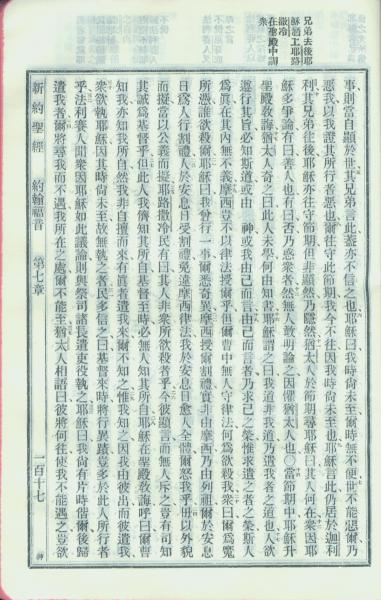 兄弟去後耶
穌酒上耶路
撒冷
在聖殿中訓
衆
事則當自顯於世其兄弟言此蓋亦不信之也耶穌曰我時尚未至爾時無不便世不能惡爾乃
惡我以我證其所行者惡也爾往守此節期我今不往因我時尚未至也耶穌言此仍居於迦利
利其兄弟往後耶穌亦往守節期但非顯然乃隱然猶太人於節期尋耶穌曰其人何在衆因耶
穌多爭論有曰善人也有曰否乃惑衆者然無人敢明論之因懼猶太人也〇當節期中耶穌升
聖殿敎誨猶太人奇之曰此人未學何由知書耶穌謂之曰我道非我道乃遣我者之道也人欲
遵行其旨必知斯道或由 神或我由己而言由己而言者乃求己之榮惟求遣之者之榮斯人
爲眞在其內無不義摩西豈不以律法授爾乎乃爾曹中無人守律法何爲欲殺我衆曰爾爲魔
所憑誰欲殺爾耶穌曰我曾行一事爾悉奇異摩西授爾割禮實非由摩西乃由列祖爾於安息
日爲人行割禮人於安息日受割禮免違摩西律法我於安息日愈人全體爾怒我乎毋以外貌
而擬當以公義而擬耶路撒冷民有曰其人非衆所欲殺者乎今彼顯言而無人斥之豈有司知
其誠爲基督乎但此人我儕知其所自基督至時必無人知其所自耶穌在聖殿敎誨呼曰爾曹
知我亦知我所自然我非自擅而來有眞者遣我來爾不知之惟我知之因我由彼出而彼遣我
衆欲執耶穌因其時尚未至故無執之者民多信之曰基督來時將行異蹟豈多於此人所行者
乎法利賽人聞衆因耶穌如此議論則與祭司諸長遣吏役執之耶穌曰我尚有片時偕爾後歸
遣我者爾將尋我而不遇我所在之處爾不能至猶太人相語曰彼將何往使我不能遇之豈欲
新約聖經 約翰福音 第七章 一百十七